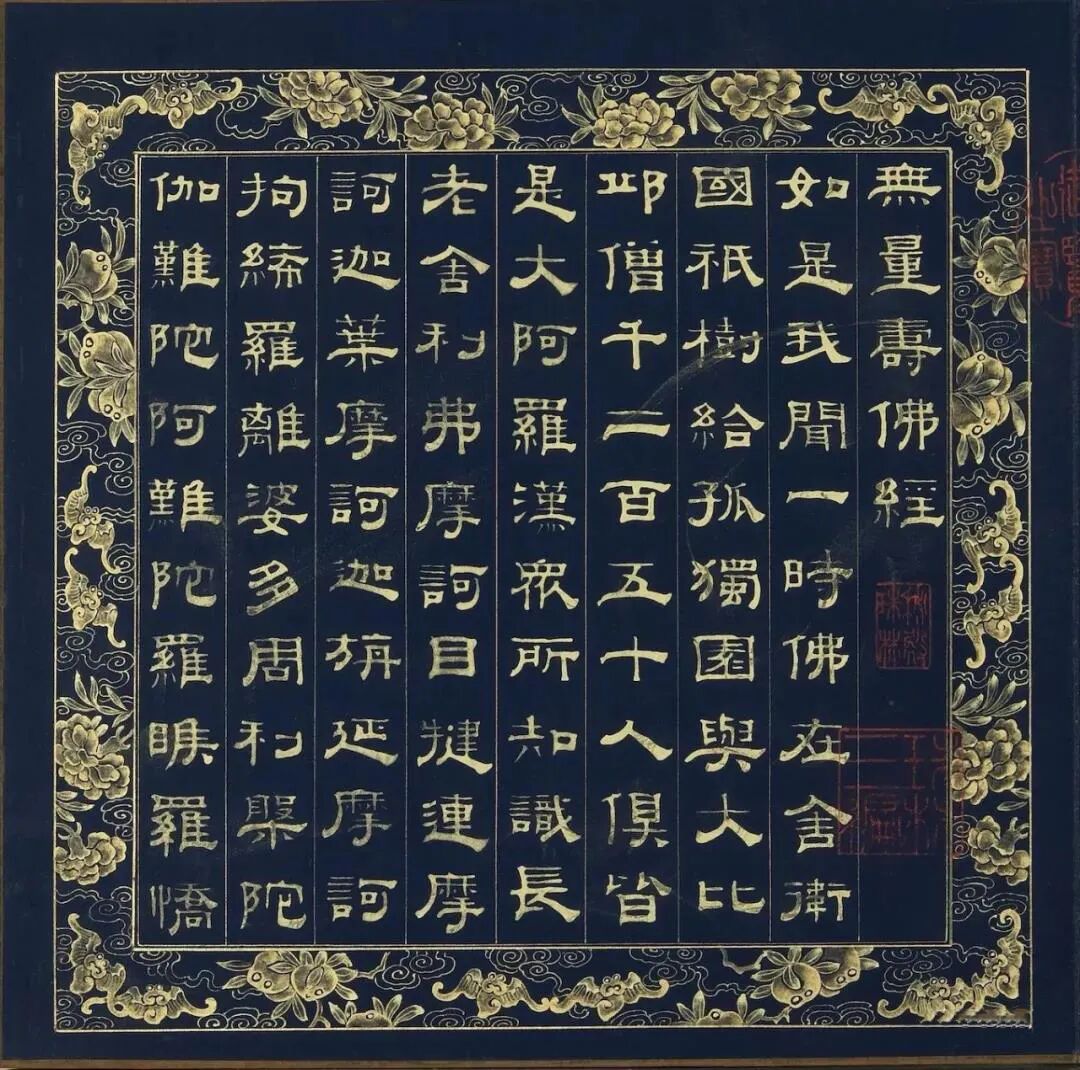 無量壽佛經
如是我聞一時佛在舍衛
國祇樹給孤獨園與大比
邱僧千二百五十人俱皆
是大阿羅漢眾所知識長
老舍利弗摩訶目犍連摩
訶迦葉摩訶迦旃延摩訶
拘絺羅離婆多周利槃陀
伽難陀阿難陀羅睺羅憍